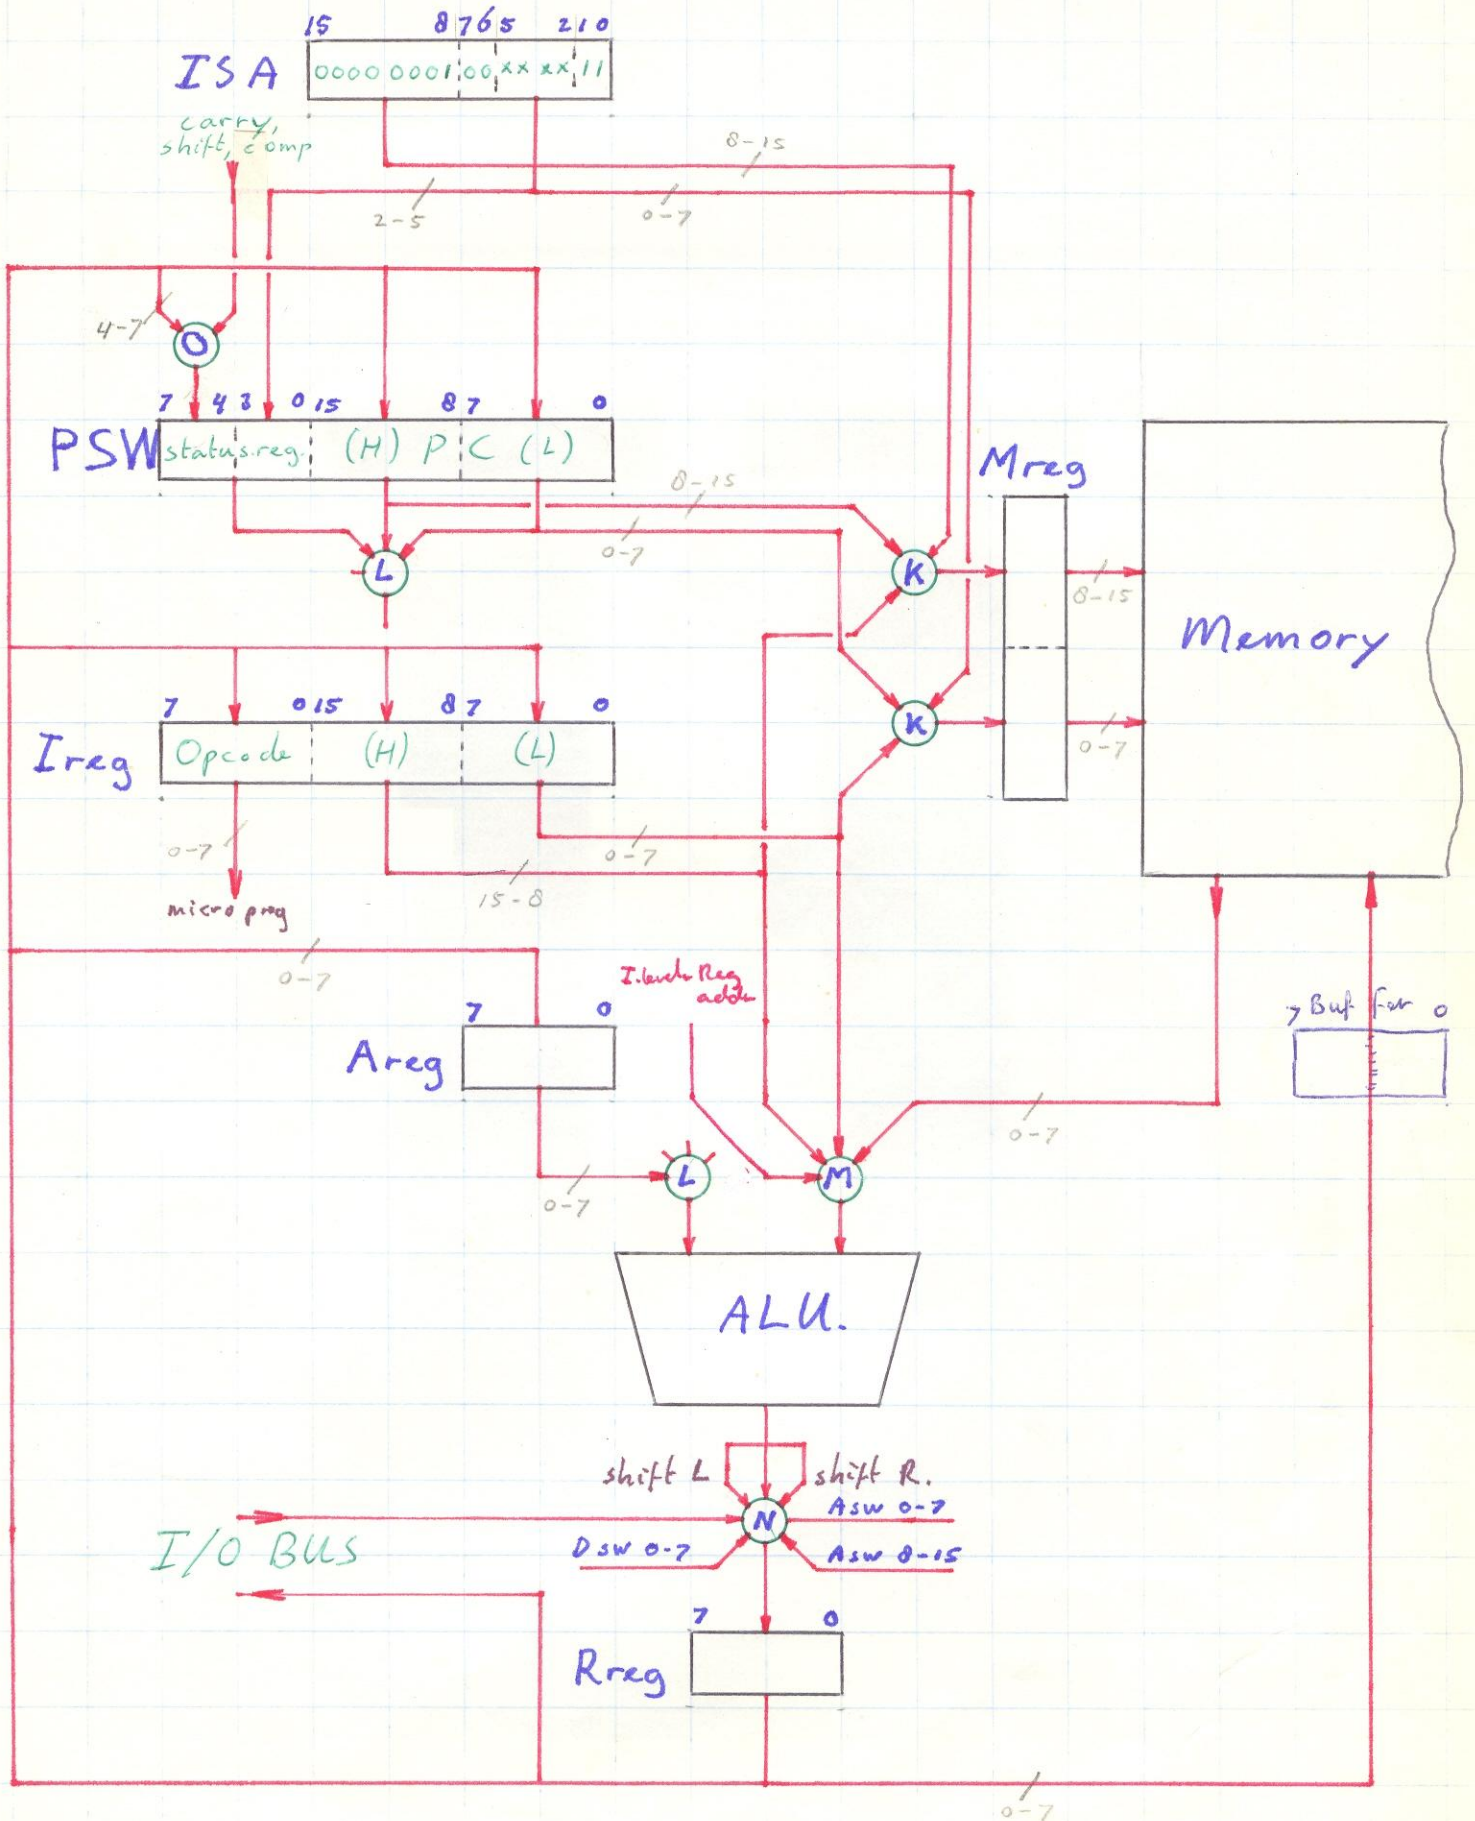 15 8 7 6 5 2 1 0
ISA 0000 0001 00 xx xx 11
carry,
shift, comp
8-15
2-5 0-7
4-7
O
7 4 3 0 15 8 7 0
PSW status reg. (H) P C (L)
Mreg
8-15
0-7
L K
8-15
Memory
7 0 15 8 7 0
Ireg Opcode (H) (L)
K
0-7
0-7 0-7
15-8
micro prog
0-7
I.level Reg
addr
7 Buffer 0
7 0
Areg
0-7
L M
0-7
ALU.
shift L shift R.
Asw 0-7
N
I/O BUS
Dsw 0-7 Asw 8-15
7 0
Rreg
0-7